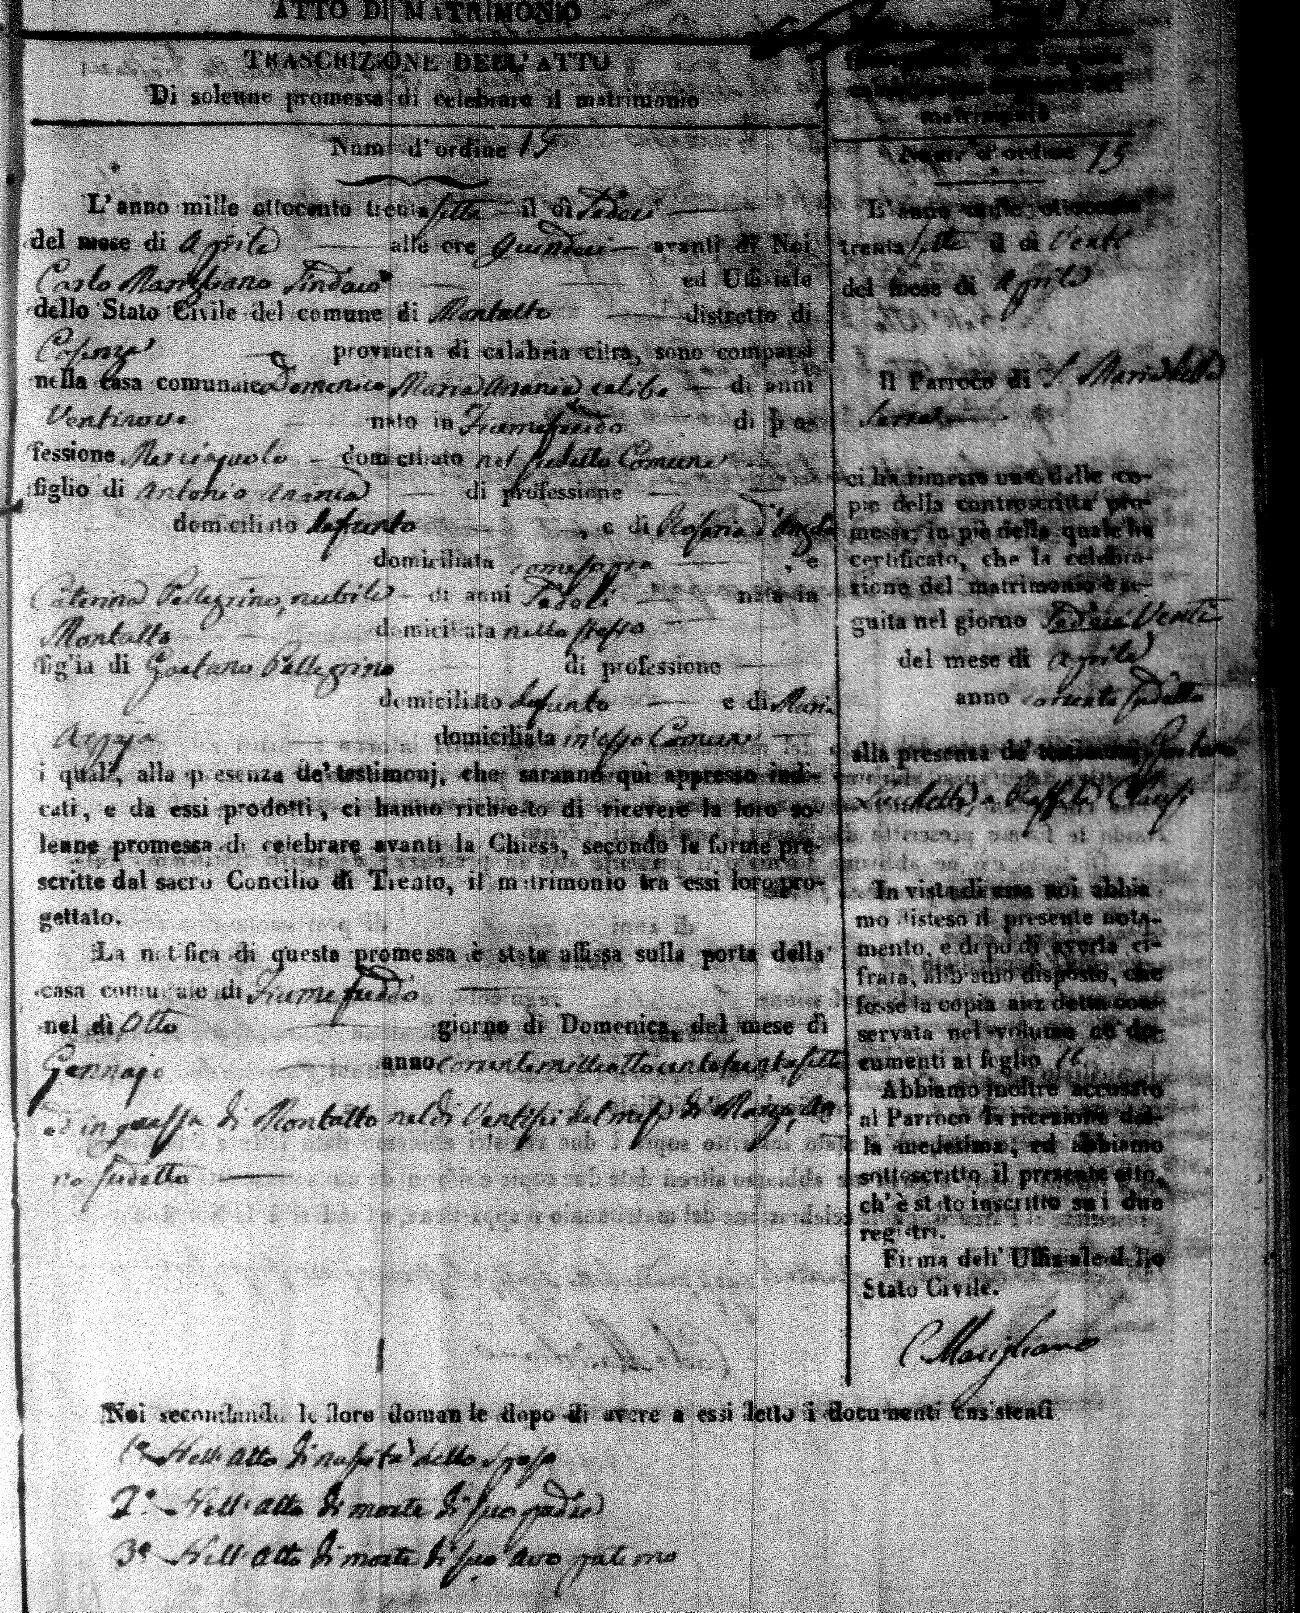 ATTO DI MATRIMONIO
TRASCRIZIONE DELL'ATTO
Di solenne promessa di celebrare il matrimonio
Num. d'ordine 15
L'anno mille ottocento trentasette il dì Sedeci
del mese di Aprile alle ore Quindeci avanti di Noi
Carlo Marigliano Sindaco ed Uffiziale
dello Stato Civile del comune di Montalto distretto di
Cosenza provincia di calabria citra, sono comparsi
nella casa comunale Domenico Maria Anania celibe di anni
Ventinove nato in Fiumefreddo di pro-
fessione domiciliato nel sudetto Comune
figlio di Antonio Anania di professione
domiciliato defunto , e di Rosaria
domiciliata come sopra , e
Caterina Pellegrino, nubile di anni Sedeci nata in
Montalto domiciliata nello stesso
figlia di Gaetano Pellegrino di professione
domiciliato defunto e di Maria
domiciliata in esso Comune
i quali, alla presenza de' testimonj, che saranno quì appresso indi-
cati, e da essi prodotti, ci hanno richiesto di ricevere la loro so-
lenne promessa di celebrare avanti la Chiesa, secondo le forme pre-
scritte dal sacro Concilio di Trento, il matrimonio tra essi loro pro-
gettato.
La notifica di questa promessa è stata affissa sulla porta della
casa comunale di Fiumefreddo
nel dì Otto giorno di Domenica, del mese di
Gennajo anno corrente mille ottocento trentasette
ed in questa di Montalto nel dì Ventisei del mese di Marzo, an
no sudetto
Num. d'ordine 15
L'anno mille ottocento
trentasette il dì Venti
del mese di Aprile
Il Parroco di S. Maria della
Serra
ci ha rimesso una delle co-
pie della controscritta pro-
messa, in piè della quale ha
certificato, che la celebra-
zione del matrimonio è se-
guita nel giorno Venti
del mese di Aprile
anno corrente sudetto
alla presenza de' testimonj Gaetano
In vista di essa noi abbia
mo disteso il presente nota-
mento, e dopo di averla ci-
frata, abbiamo disposto, che
fosse la copia anzi detta con-
servata nel volume de' do-
cumenti al foglio
Abbiamo inoltre accusato
al Parroco la ricezione del-
la medesima, ed abbiamo
sottoscritto il presente atto,
ch' è stato inscritto su i due
registri.
Firma dell' Uffiziale dello
Stato Civile.
C Marigliano
Noi secondando le loro domande dopo di avere a essi letto i documenti consistenti
1° Nell'atto di nascita dello sposo
2° Nell'atto di morte di suo padre
3° Nell'atto di morte di suo avo paterno